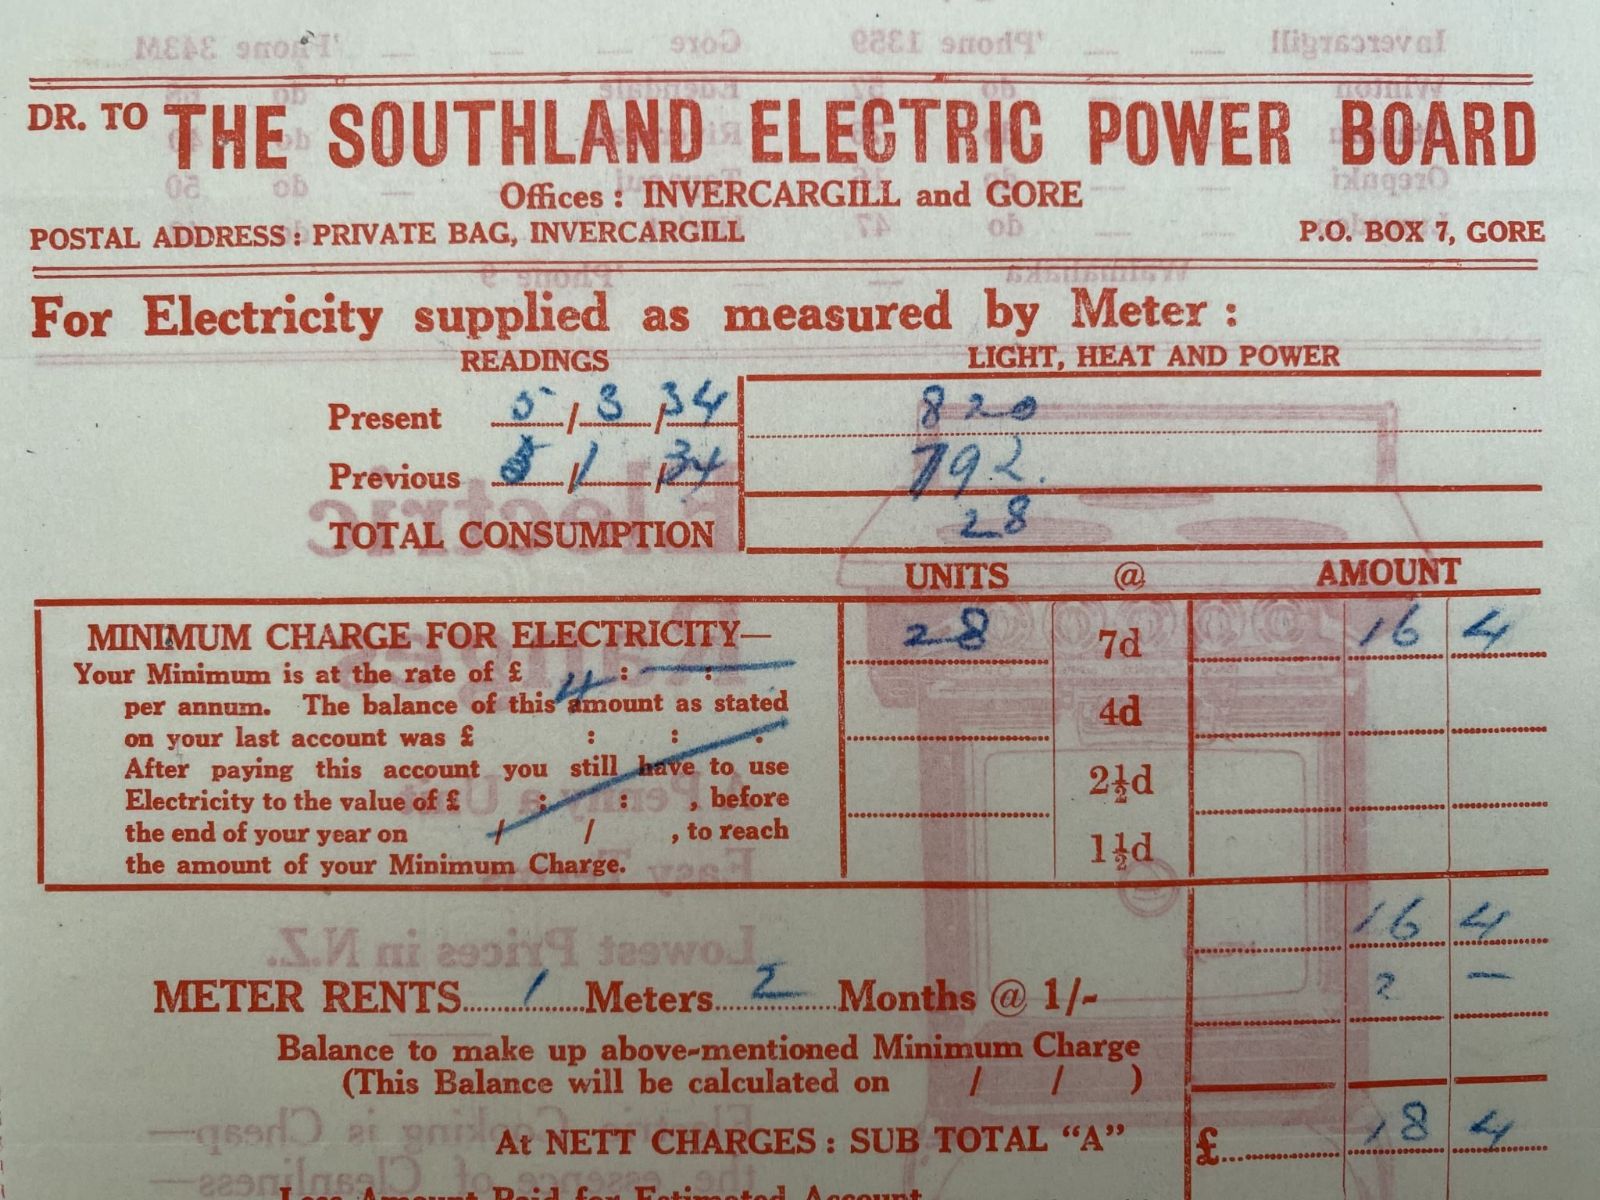 DR. TO THE SOUTHLAND ELECTRIC POWER BOARD
Offices : INVERCARGILL and GORE
POSTAL ADDRESS : PRIVATE BAG, INVERCARGILL P.O. BOX 7, GORE
For Electricity supplied as measured by Meter :
READINGS LIGHT, HEAT AND POWER
Present 5 / 3 / 34 820
Previous 5 / 1 / 34 792.
TOTAL CONSUMPTION 28
UNITS @ AMOUNT
MINIMUM CHARGE FOR ELECTRICITY— 28 7d 16 4
Your Minimum is at the rate of £ 4 : — : —
per annum. The balance of this amount as stated 4d
on your last account was £ : : .
After paying this account you still have to use 2½d
Electricity to the value of £ : : , before
the end of your year on / / , to reach 1½d
the amount of your Minimum Charge.
16 4
METER RENTS 1 Meters 2 Months @ 1/- 2 –
Balance to make up above-mentioned Minimum Charge
(This Balance will be calculated on / / )
At NETT CHARGES : SUB TOTAL "A" £ 18 4
Less Amount Paid for Estimated Account